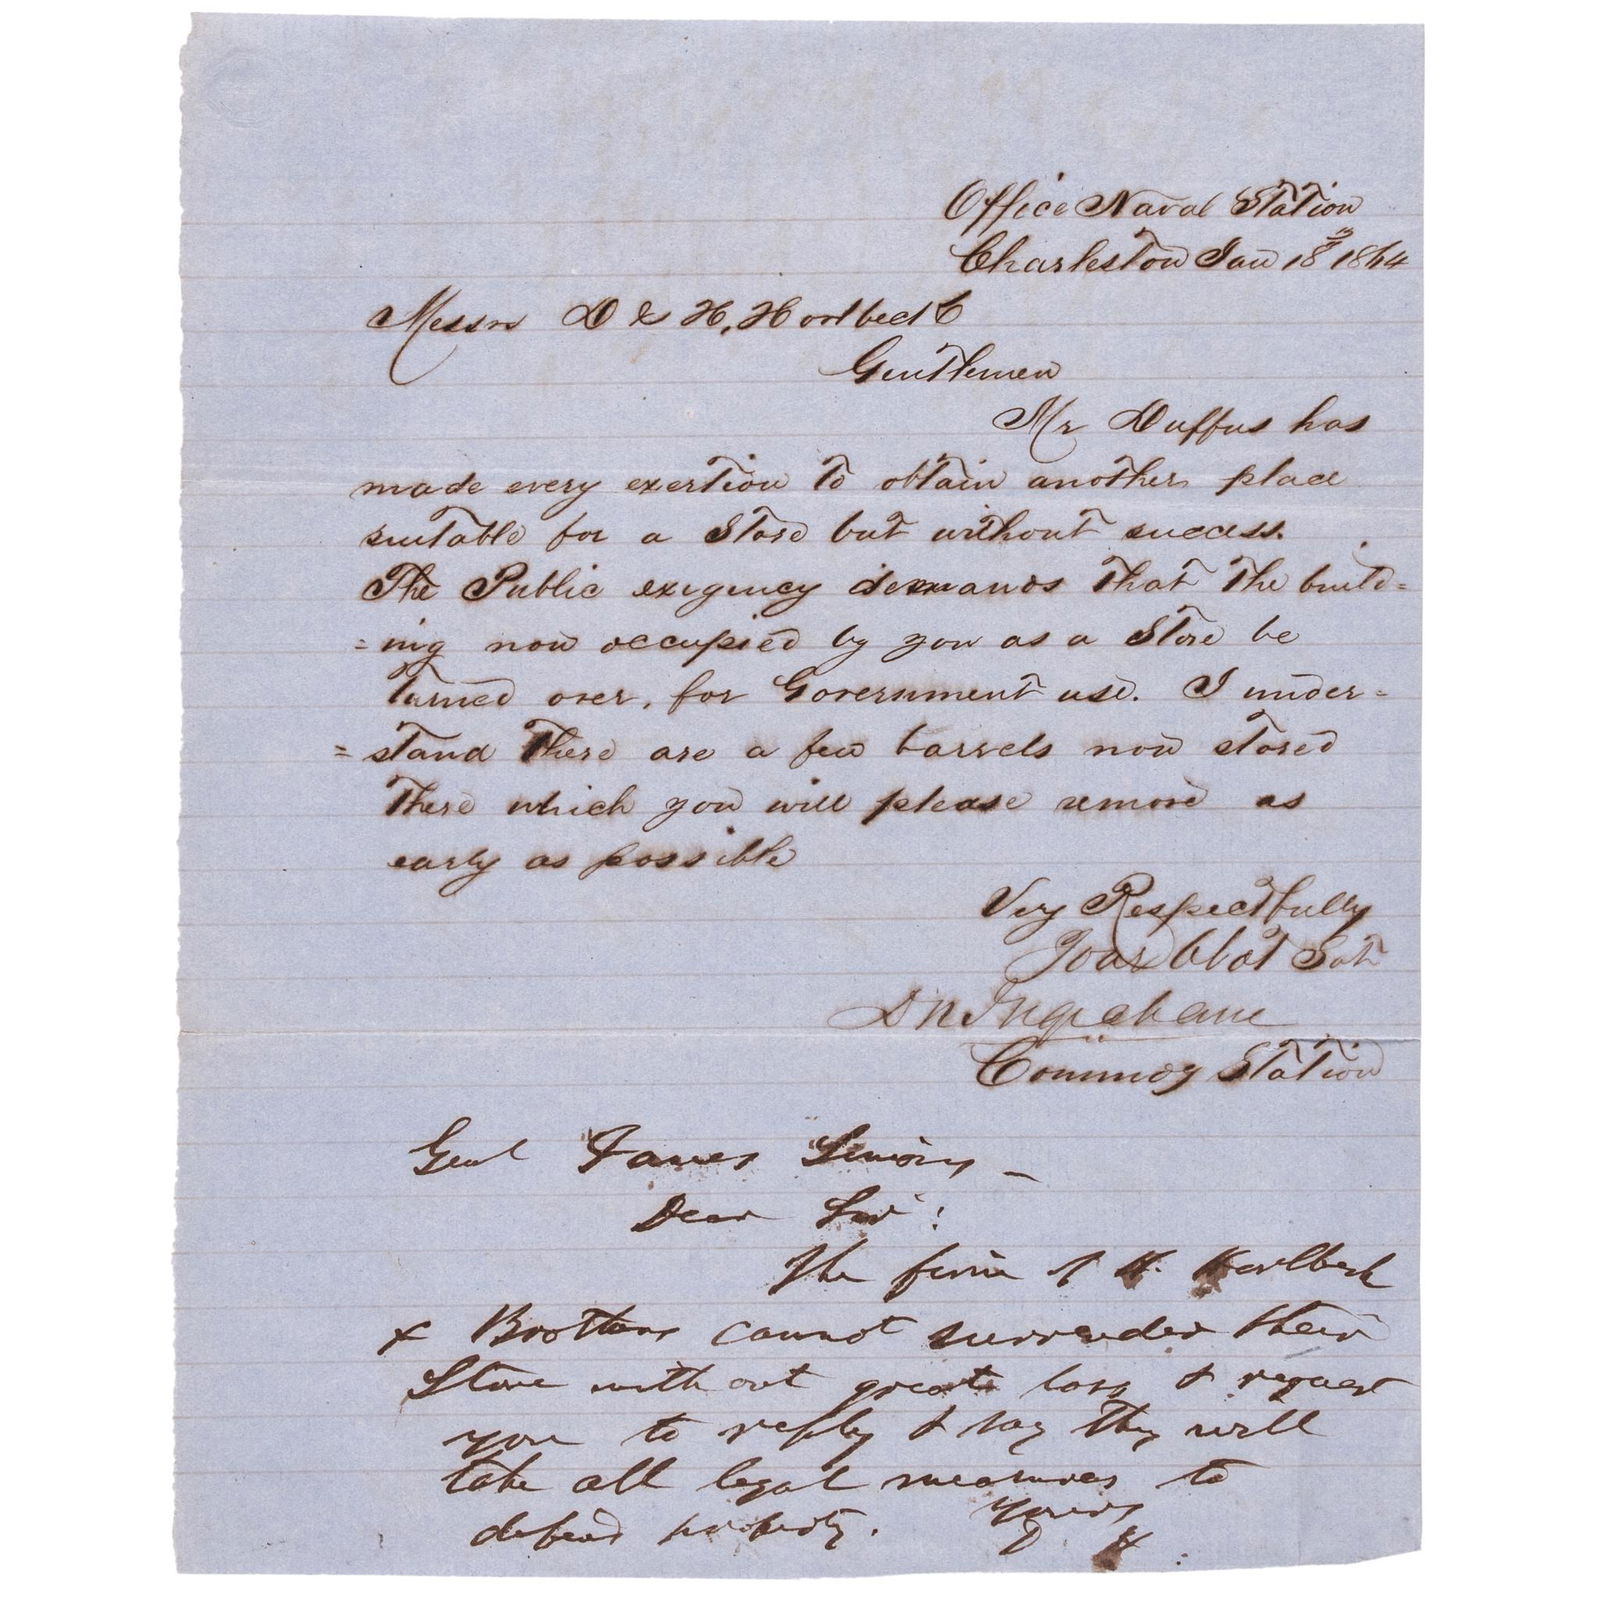 Office Naval Station
Charleston Jan 18th 1864
Messrs D & H. Horlbeck
Gentlemen
Mr Duffus has
made every exertion to obtain another place
suitable for a Store but without success.
The Public exigency demands that the build=
=ing now occupied by you as a Store be
turned over, for Government use. I under=
=stand there are a few barrels now stored
there which you will please remove as
early as possible
Very Respectfully
Your Obdt Sert
D N Ingraham
Commdg Station
Genl James Simons —
Dear Sir :
The firm of H. Horlbeck
& Brothers cannot surrender their
Store without great loss & request
you to reply & say they will
take all legal measures to
defend property. Yours
D H